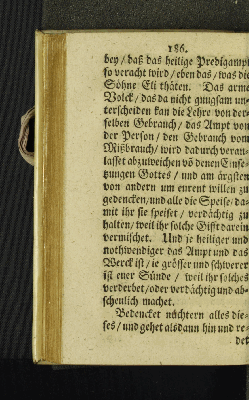 186.
bey / daß das heilige Predigampt
so veracht wird / eben das / was die
Söhne Eli thäten. Das arme
Volck / das da nicht gnugsam un-
terscheiden kan die Lehre von der-
selben Gebrauch / das Ampt von
der Person / den Gebrauch vom
Mißbrauch / wird dadurch veran-
lasset abzuweichen võ denen Einse-
tzungen Gottes / und am ärgsten
von andern um eurent willen zu
gedencken / und alle die Speise / da-
mit ihr sie speiset / verdächtig zu
halten / weil ihr solche Gifft darein
vermischet. Und je heiliger und
nothwendiger das Ampt und das
Werck ist / je grösser und schwerer
ist euer Sünde / weil ihr solches
verderbet / oder verdächtig und ab-
scheulich machet.
Bedencket nüchtern alles die-
ses / und gehet alsdann hin und re-
det